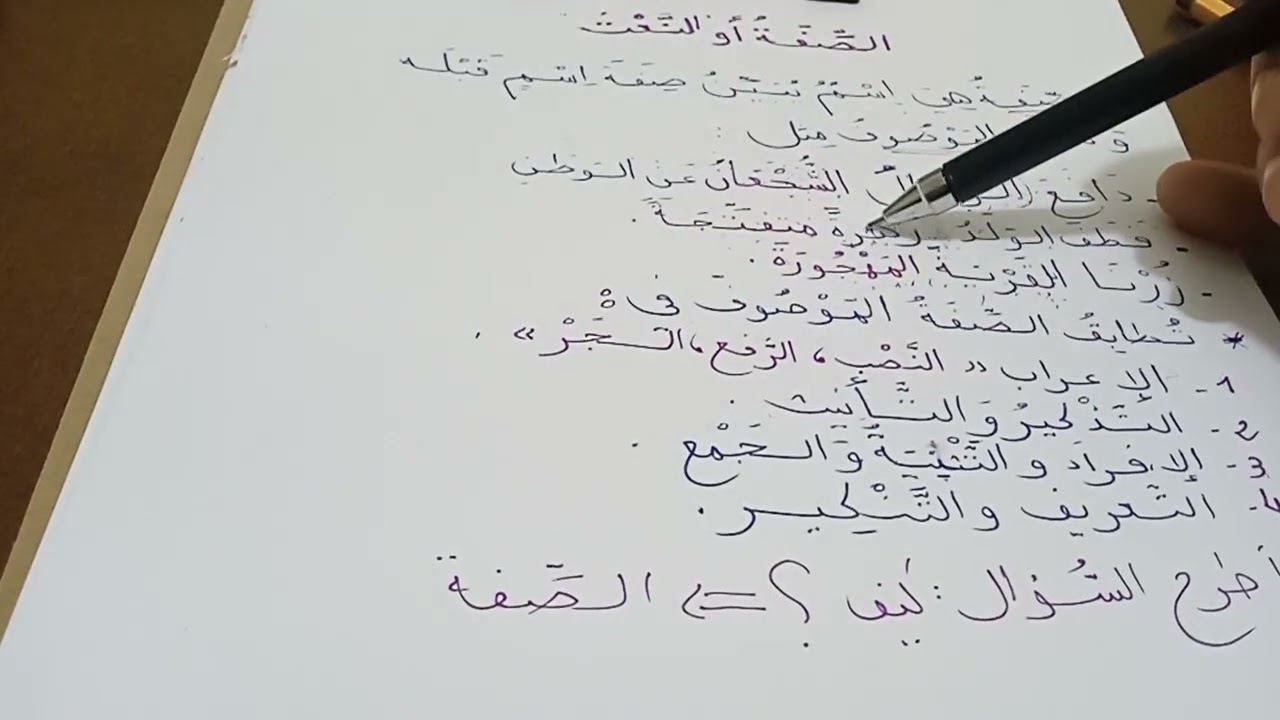 الصِّفَةُ أَو النَّعْتُ
هِيَ اِسْمٌ تُبَيِّنُ صِفَةَ اِسْمٍ قَبْلَه
المَوْصُوف مِثل :
- دَافَعَ الشُّجْعَانُ عَن الوَطَنِ
- قَطَفَ الوَلَدُ زَهْرَةً متفَتِّحَةً .
- زُرْنَا القَرْيَةَ المَهْجُورَةَ .
* تُطَابِقُ الصِّفَةُ المَوْصُوفَ فِي :
1- الإعراب « النَّصْب ، الرَّفع ، الجَرْ » .
2- التَّذْكيرُ وَ التَّأنيث .
3- الإفرادَ و التَّثْنِيَةُ وَ الجَمْع .
4- التَّعريف و التَّنْكير .
أطرح السُّؤال : كيف ؟ => الصِّفة